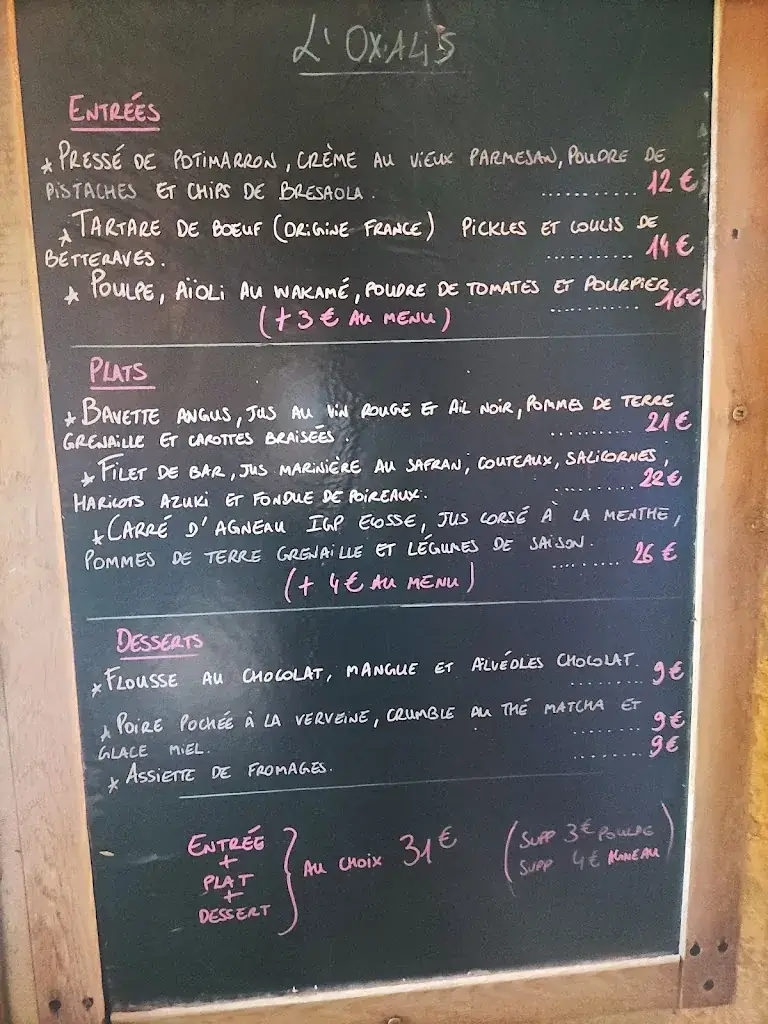 L'OXALIS
ENTRÉES
* PRESSÉ DE POTIMARRON, CRÈME AU VIEUX PARMESAN, POUDRE DE
PISTACHES ET CHIPS DE BRESAOLA. .......... 12 €
* TARTARE DE BOEUF (ORIGINE FRANCE) PICKLES ET COULIS DE
BETTERAVES. .......... 14 €
* POULPE, AÏOLI AU WAKAMÉ, POUDRE DE TOMATES ET POURPIER. .......... 16 €
(+ 3 € AU MENU)
PLATS
* BAVETTE ANGUS, JUS AU VIN ROUGE ET AIL NOIR, POMMES DE TERRE
GRENAILLE ET CAROTTES BRAISÉES. .......... 21 €
* FILET DE BAR, JUS MARINIÈRE AU SAFRAN, COUTEAUX, SALICORNES,
HARICOTS AZUKI ET FONDUE DE POIREAUX. .......... 22 €
* CARRÉ D'AGNEAU IGP ECOSSE, JUS CORSÉ À LA MENTHE,
POMMES DE TERRE GRENAILLE ET LÉGUMES DE SAISON. .......... 26 €
(+ 4 € AU MENU)
DESSERTS
* FLOUSSE AU CHOCOLAT, MANGUE ET ALVÉOLES CHOCOLAT. .......... 9 €
* POIRE POCHÉE À LA VERVEINE, CRUMBLE AU THÉ MATCHA ET
GLACE MIEL. .......... 9 €
* ASSIETTE DE FROMAGES. .......... 9 €
ENTRÉE
+
PLAT
+
DESSERT
AU CHOIX 31 €
(SUPP 3 € POULPE
SUPP 4 € AGNEAU)